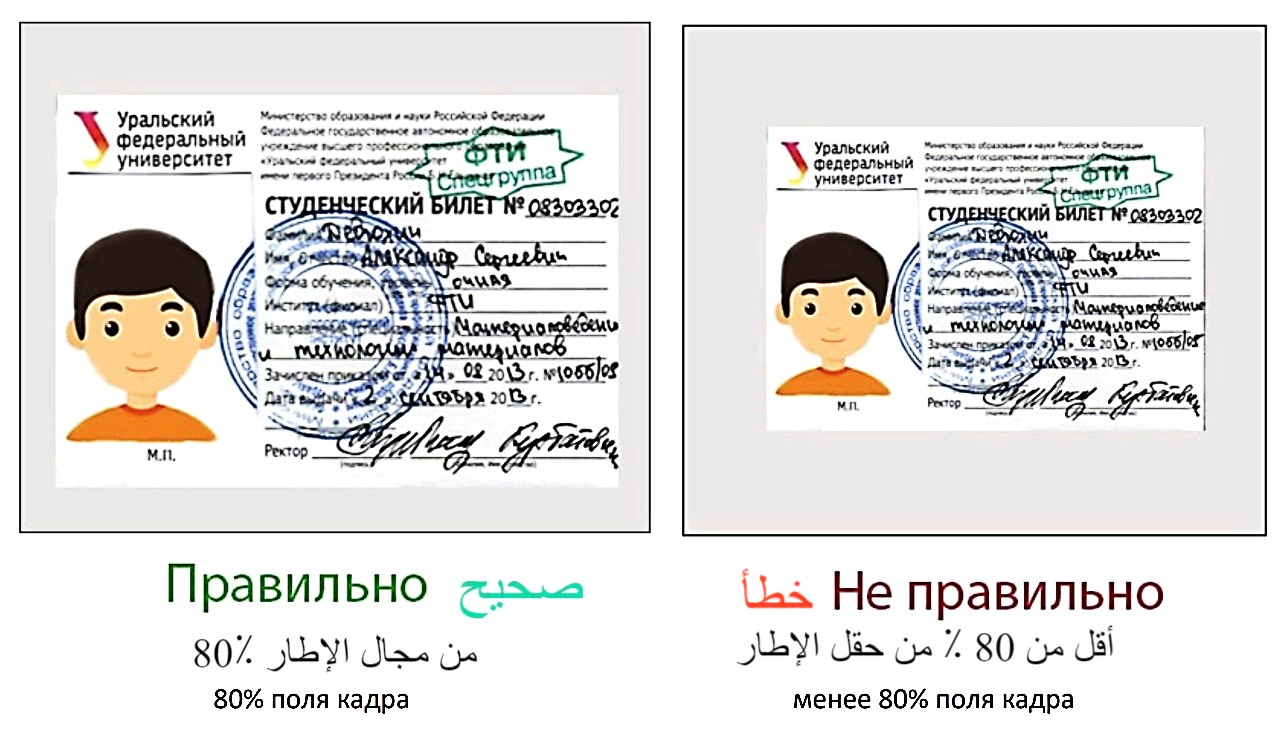 Уральский
федеральный
университет
Министерство образования и науки Российской Федерации
Федеральное государственное автономное образовательное
учреждение высшего профессионального
«Уральский федеральный университет
имени первого Президента России Б.Н.
ФТИ
Спецгруппа
СТУДЕНЧЕСКИЙ БИЛЕТ № 08303302
Фамилия
Имя, отчество Александр Сергеевич
Форма обучения, очная
Институт (филиал) ФТИ
Направление (специальность) Материаловедение
и технологии материалов
Зачислен приказом от «14» 08 2013 г. № 1066/08
Дата выдачи «2» сентября 2013 г.
Ректор
М.П.
Уральский
федеральный
университет
Министерство образования и науки Российской Федерации
Федеральное государственное автономное образовательное
учреждение высшего профессионального
«Уральский федеральный университет
имени первого Президента России Б.Н.
ФТИ
Спецгруппа
СТУДЕНЧЕСКИЙ БИЛЕТ № 08303302
Фамилия
Имя, отчество Александр Сергеевич
Форма обучения, очная
Институт (филиал) ФТИ
Направление (специальность) Материаловедение
и технологии материалов
Зачислен приказом от «14» 08 2013 г. № 1066/08
Дата выдачи «2» сентября 2013 г.
Ректор
М.П.
Правильно صحيح
من مجال الإطار 80٪
80% поля кадра
خطأ Не правильно
أقل من 80 ٪ من حقل الإطار
менее 80% поля кадра